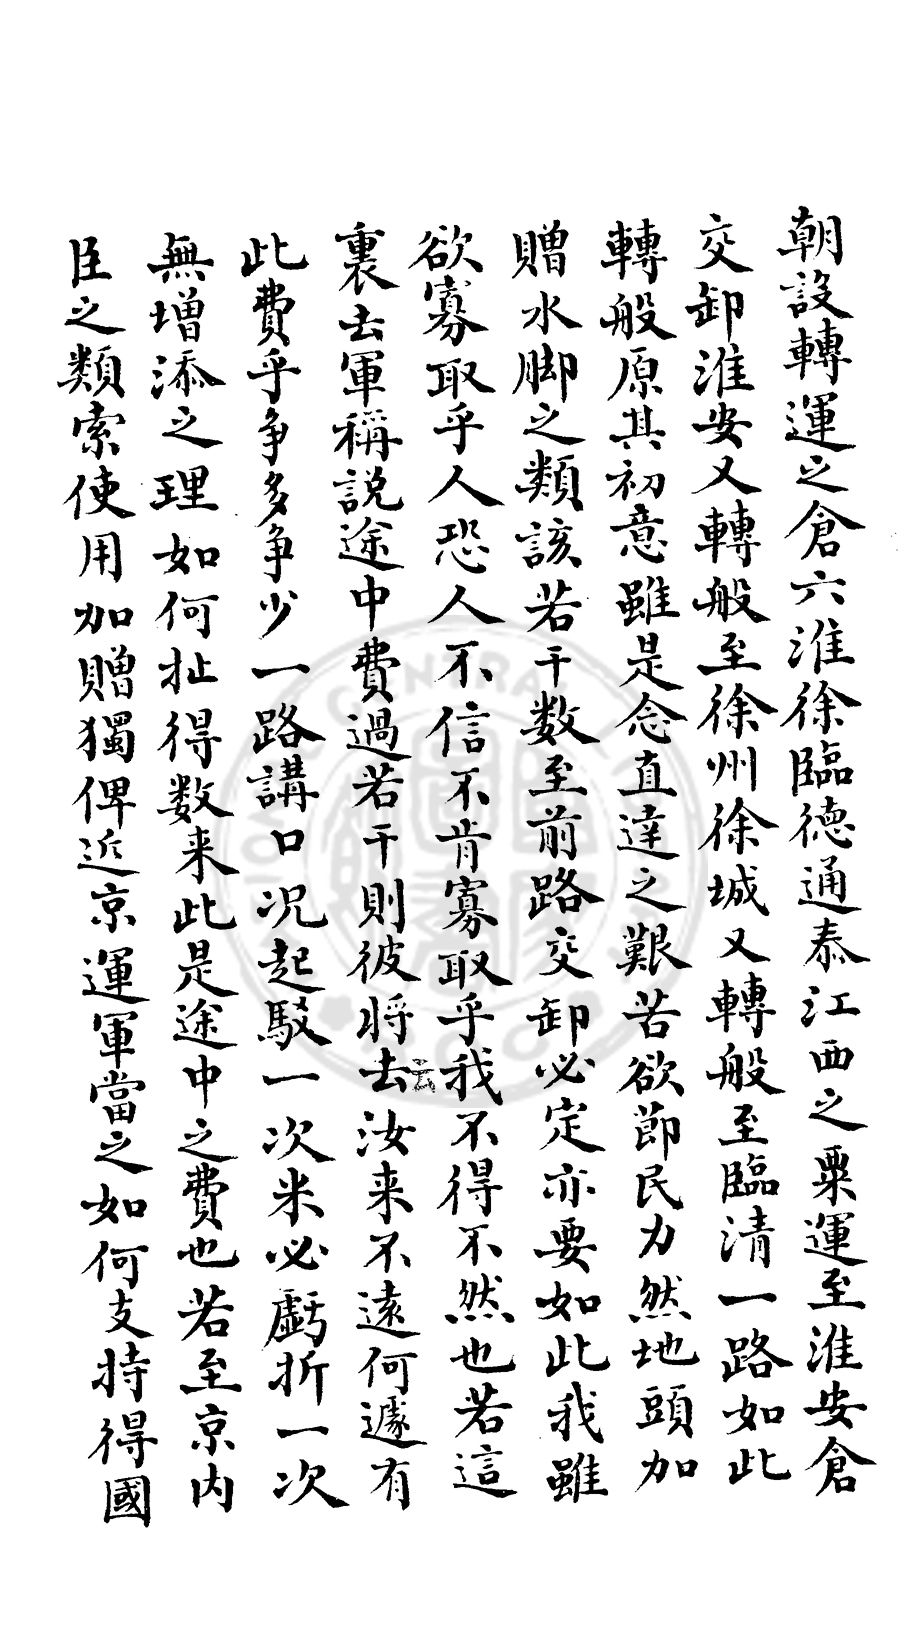 朝設轉運之倉六淮徐臨德通泰江西之粟運至淮安倉
交卸淮安又轉般至徐州徐城又轉般至臨清一路如此
轉般原其初意雖是念直達之艱苦欲節民力然地頭加
贈水脚之類該若干数至前路交卸必定亦要如此我雖
欲寡取乎人恐人不信不肯寡取乎我不得不然也若這
裏去軍稱説途中費過若干則彼將去汝来不遠何遽有
此費乎争多争少一路講口况起駁一次米必虧折一次
無增添之理如何扯得数来此是途中之費也若至京内
臣之類索使用加贈獨俾近京運軍當之如何支持得國